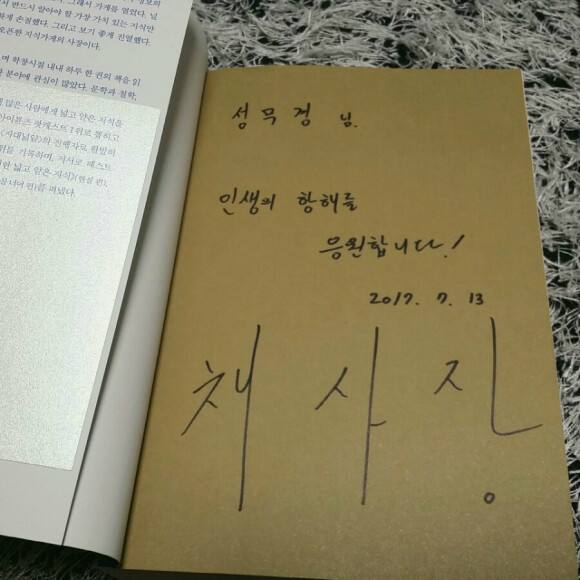 서 반드시 알아야 할 가장 가치 있는 지식만
하게 손질했다. 그리고 보기 좋게 진열했다.
오픈한 지식가게의 사장이다.
며 학창시절 내내 하루 한 권의 책을 읽
분야에 관심이 많았다. 문학과 철학,
많은 사람에게 넓고 얕은 지식을
아이튠즈 팟캐스트 1위로 뽑히고
〈지대넓얕〉의 진행자로 활발히
위를 기록하며, 저서로 베스트
한 넓고 얕은 지식》(현실 편),
너머 편)를 펴냈다.
성무경 님.
인생의 항해를
응원합니다!
2017. 7. 13
채사장